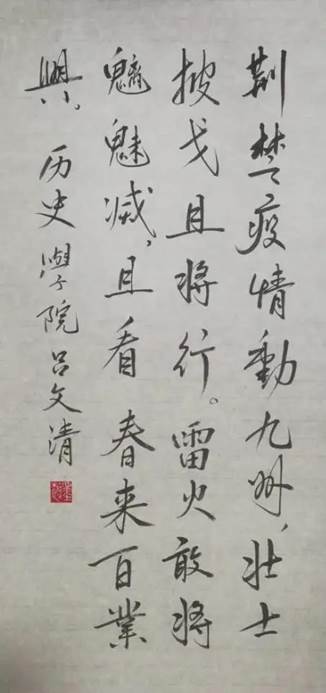 荆楚疫情動九州，壯士
披戈且將行。雷火敢將
魑魅滅，且看春来百業
興。历史學院呂文清